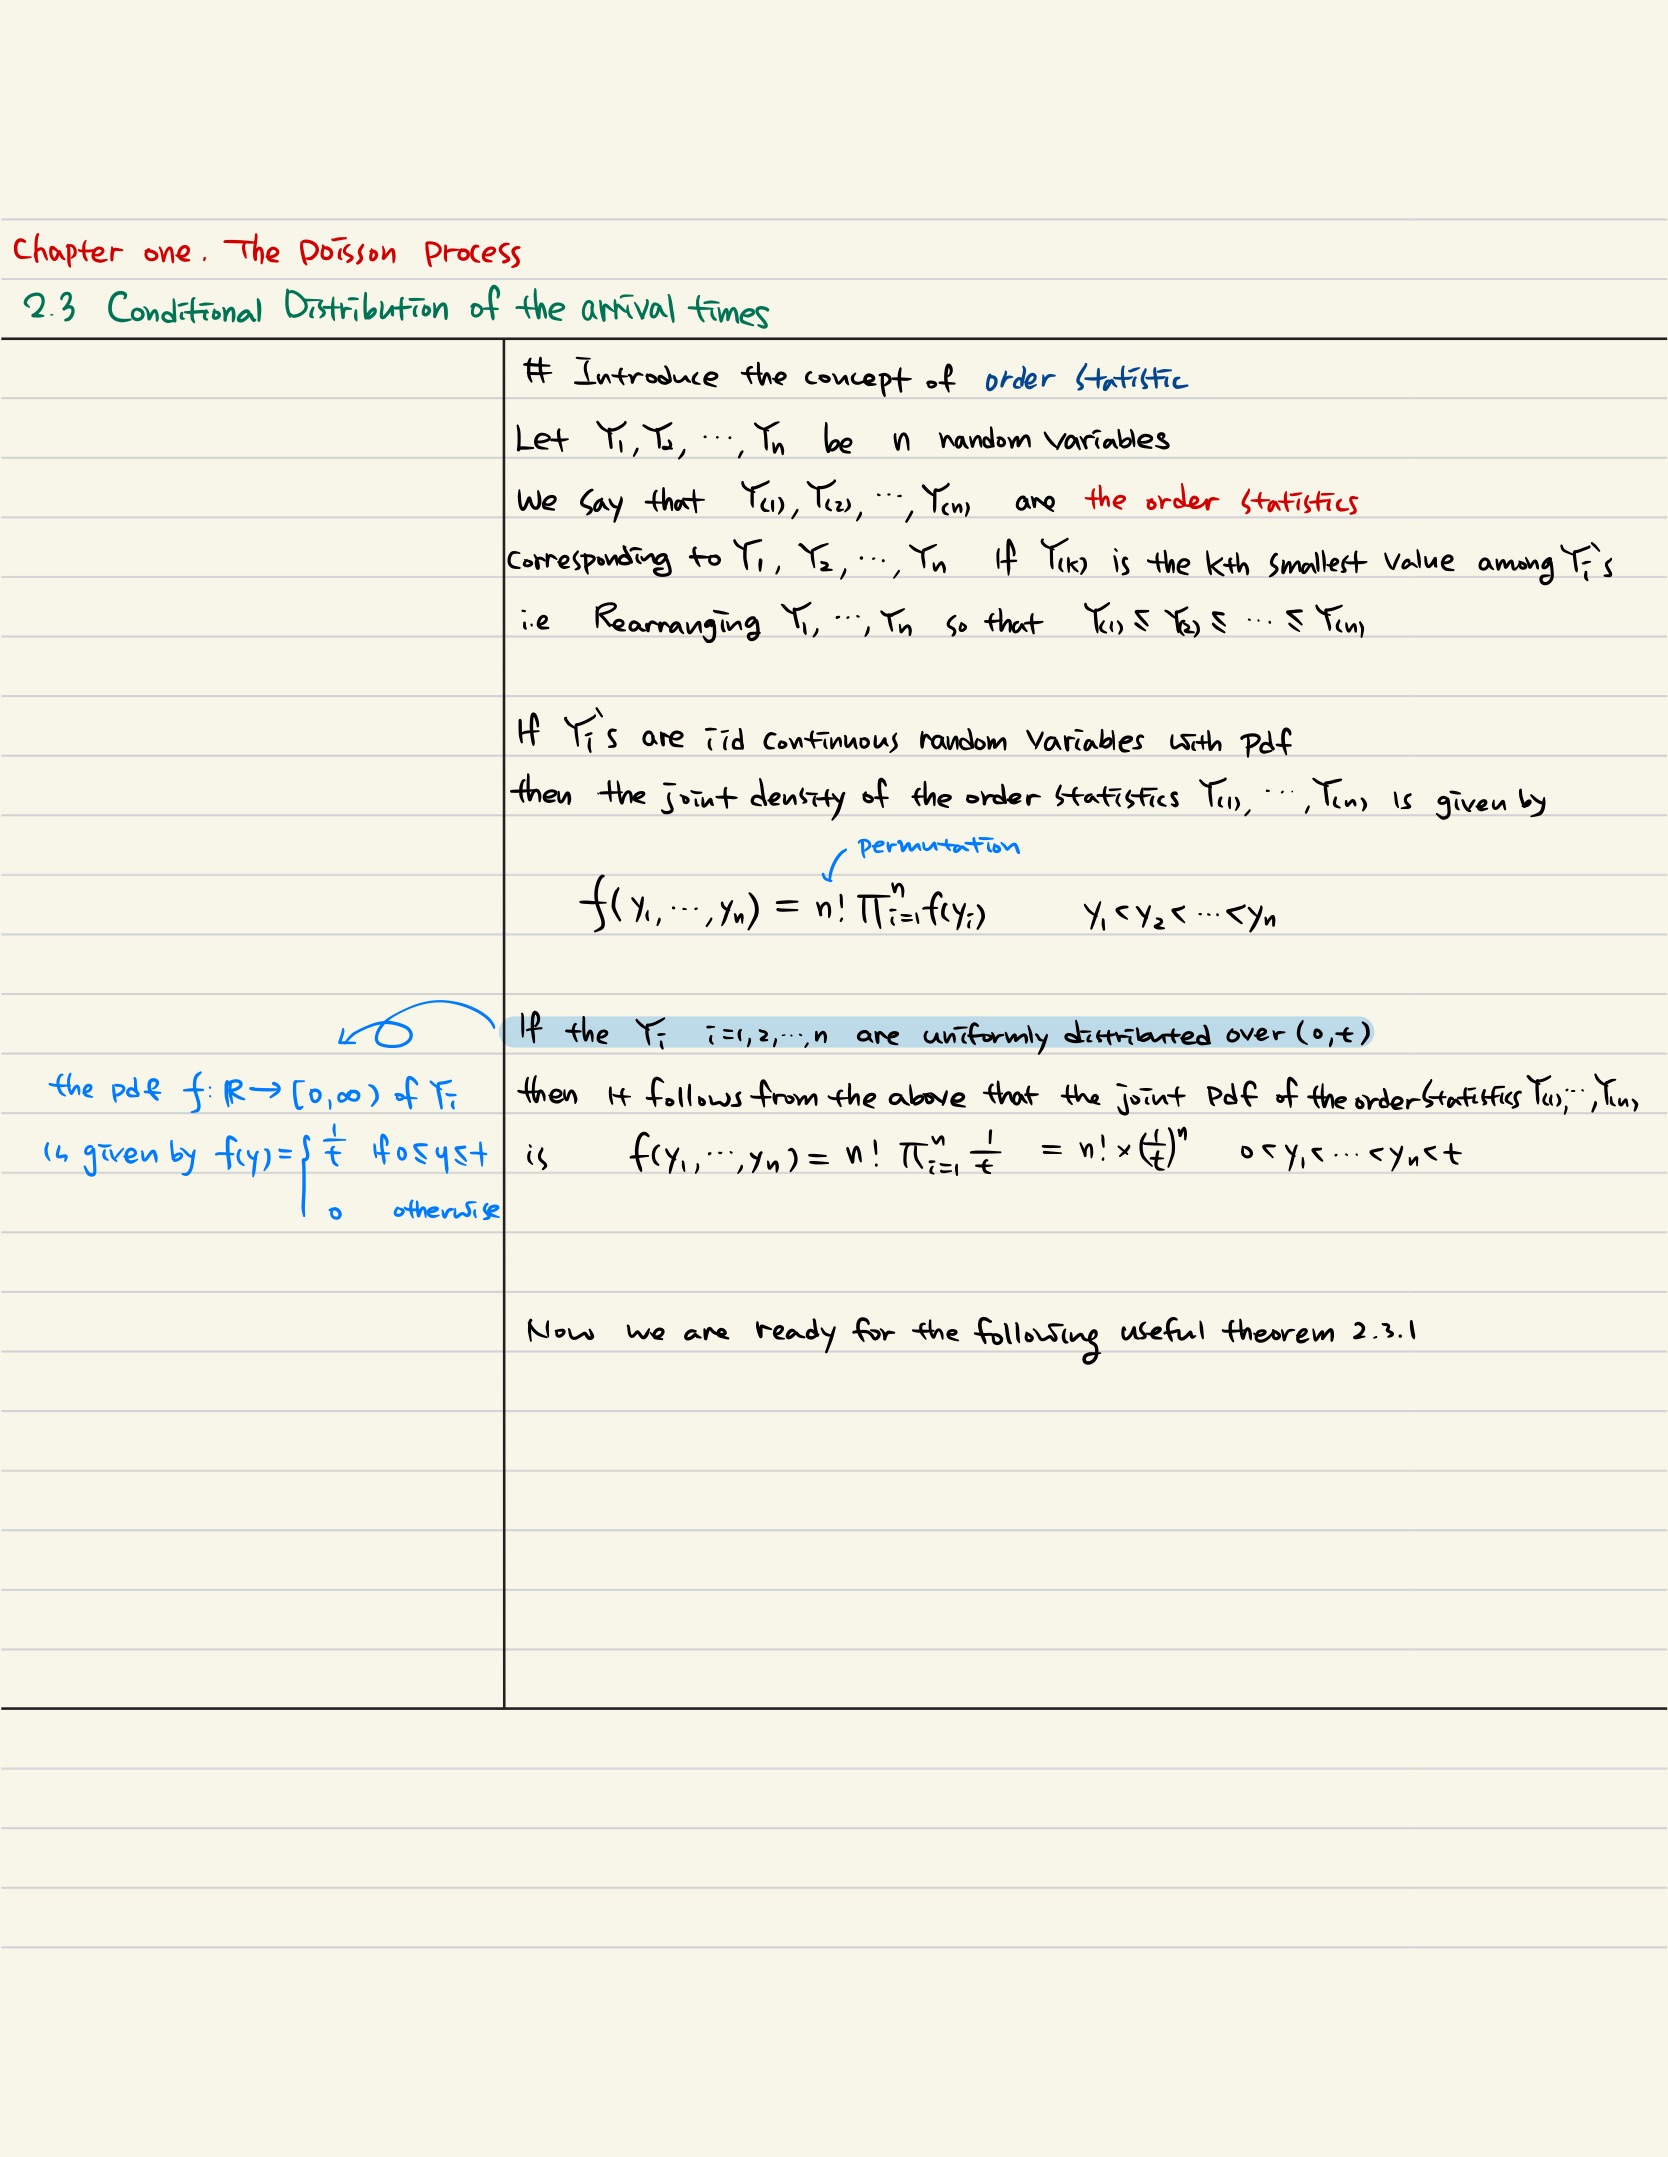 Chapter one. The Poisson Process
2.3 Conditional Distribution of the arrival times
# Introduce the concept of order statistic
Let Y₁, Y₂, ⋯, Yₙ be n random variables
We say that Y₍₁₎, Y₍₂₎, ⋯, Y₍ₙ₎ are the order statistics
corresponding to Y₁, Y₂, ⋯, Yₙ If Y₍ₖ₎ is the kth smallest value among Yᵢ`s
i.e Rearranging Y₁, ⋯, Yₙ so that Y₍₁₎ ≤ Y₍₂₎ ≤ ⋯ ≤ Y₍ₙ₎
If Yᵢ`s are iid continuous random variables with pdf
then the joint density of the order statistics Y₍₁₎, ⋯, Y₍ₙ₎ is given by
permutation
f(y₁, ⋯, yₙ) = n! ∏ᵢ₌₁ⁿ f(yᵢ) y₁ < y₂ < ⋯ < yₙ
If the Yᵢ i=1,2,⋯,n are uniformly distributed over (0,t)
the pdf f: ℝ → [0,∞) of Yᵢ
is given by f(y) = { 1/t if 0 ≤ y ≤ t
0 otherwise
then it follows from the above that the joint pdf of the order statistics Y₍₁₎, ⋯, Y₍ₙ₎
is f(y₁, ⋯, yₙ) = n! ∏ᵢ₌₁ⁿ 1/t = n! × (1/t)ⁿ 0 < y₁ < ⋯ < yₙ < t
Now we are ready for the following useful theorem 2.3.1